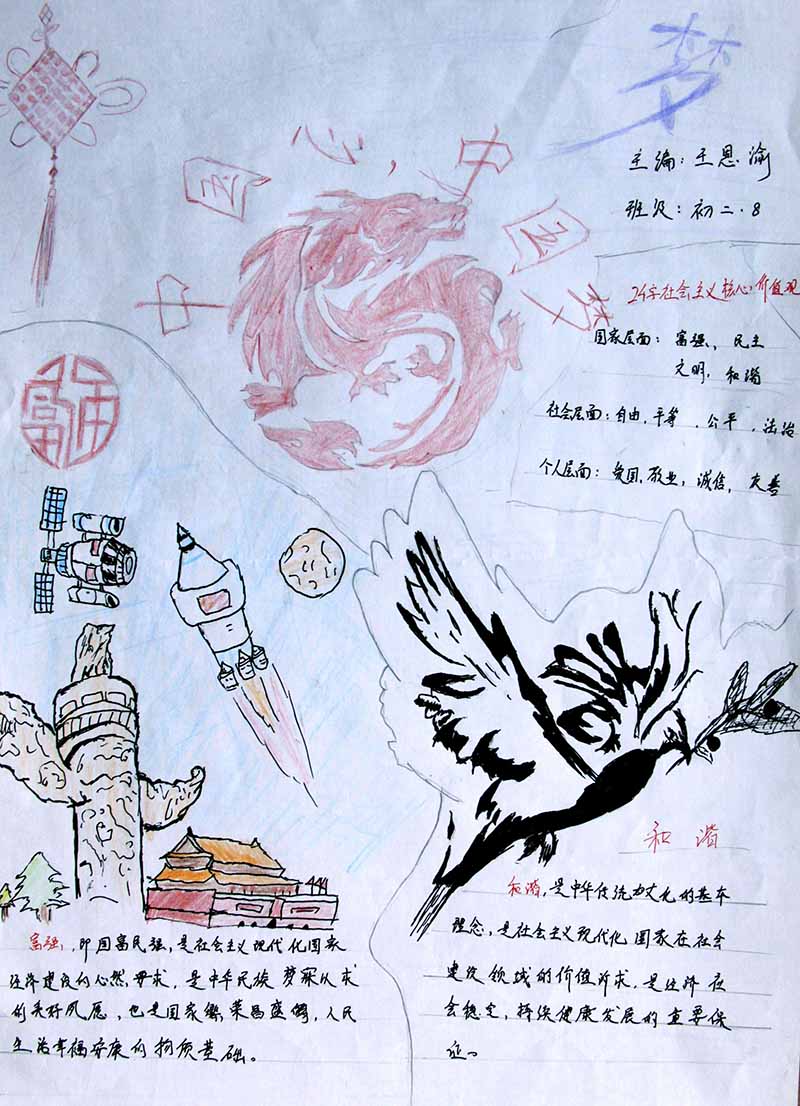 梦
主编：王恩渝
班级：初二·8
中国心，中国梦
24字社会主义核心价值观
国家层面：富强、民主
文明，和谐
社会层面：自由，平等，公平，法治
个人层面：爱国，敬业，诚信，友善
富强
和谐
和谐，是中华传统文化的基本
理念，是社会主义现代化国家在社会
建设领域的价值诉求，是经济社
会稳定，持续健康发展的重要保
证。
富强，即国富民强，是社会主义现代化国家
经济建设的必然要求，是中华民族梦寐以求
的美好夙愿，也是国家繁荣昌盛，人民
生活幸福安康的物质基础。